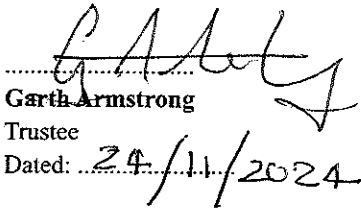 Garth Armstrong
Trustee
Dated: 24/11/2024